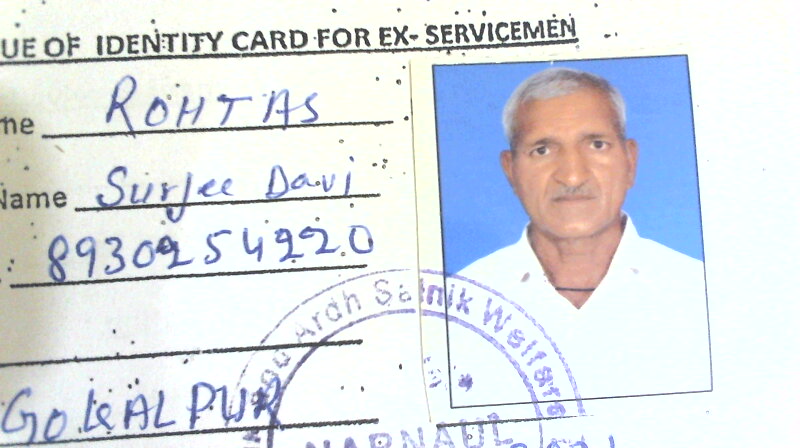 UE OF IDENTITY CARD FOR EX- SERVICEMEN
me ROHTAS
Name Surjee Davi
8930254220
GOKALPUR
Ardh Sainik Welfare
NARNAUL